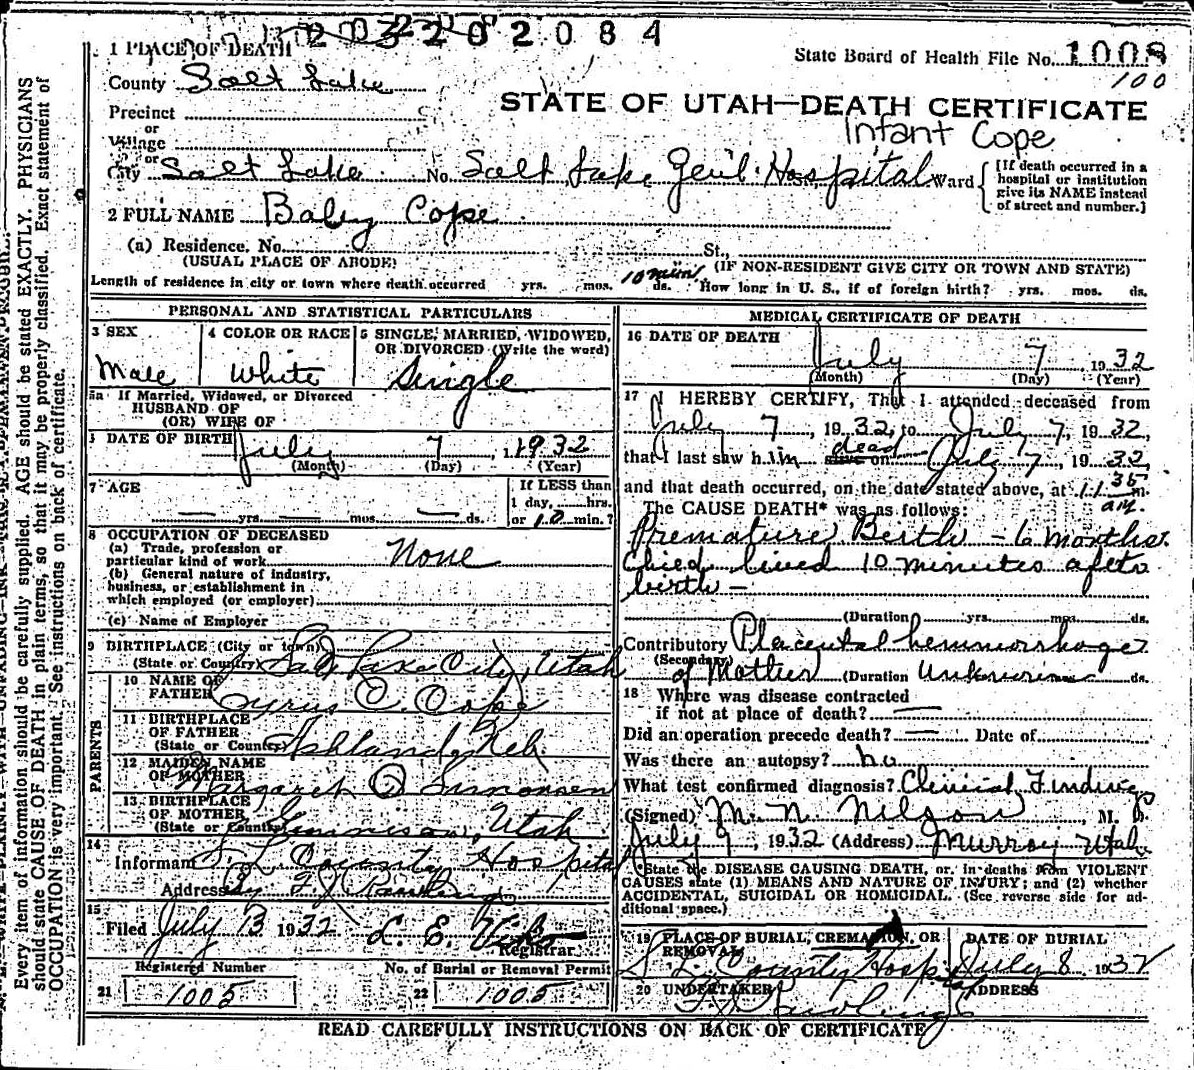 2032202084
1 PLACE OF DEATH
State Board of Health File No. 1008
100
County Salt Lake
STATE OF UTAH—DEATH CERTIFICATE
Precinct
or
Village
Infant Cope
or
City Salt Lake. No. Salt Lake Gen'l. Hospital Ward
[If death occurred in a hospital or institution give its NAME instead of street and number.]
2 FULL NAME Baby Cope.
(a) Residence. No. St.,
(USUAL PLACE OF ABODE) (IF NON-RESIDENT GIVE CITY OR TOWN AND STATE)
Length of residence in city or town where death occurred yrs. mos. 10 mins ds. How long in U. S., if of foreign birth? yrs. mos. ds.
PERSONAL AND STATISTICAL PARTICULARS
3 SEX
Male
4 COLOR OR RACE
White
5 SINGLE, MARRIED, WIDOWED,
OR DIVORCED (Write the word)
Single
5a If Married, Widowed, or Divorced
HUSBAND OF
(OR) WIFE OF
DATE OF BIRTH July 7, 1932
(Month) (Day) (Year)
7 AGE
— yrs. — mos. — ds.
If LESS than
1 day, hrs.
or 10 min.?
8 OCCUPATION OF DECEASED
(a) Trade, profession or
particular kind of work None
(b) General nature of industry,
business, or establishment in
which employed (or employer)
(c) Name of Employer
9 BIRTHPLACE (City or town)
(State or Country) Salt Lake City, Utah
PARENTS
10 NAME OF
FATHER Cyrus C. Cope
11 BIRTHPLACE
OF FATHER
(State or Country) Ashland, Neb.
12 MAIDEN NAME
OF MOTHER Margaret O Simonsen
13 BIRTHPLACE
OF MOTHER
(State or Country) Gunnison, Utah
14
Informant S. L. County Hospital
Address By F. J. Rawlings
15
Filed July 13 1932 L. E. Viko
Registrar
Registered Number
21 1005
No. of Burial or Removal Permit
22 1005
MEDICAL CERTIFICATE OF DEATH
16 DATE OF DEATH
July 7 1932
(Month) (Day) (Year)
17 I HEREBY CERTIFY, That I attended deceased from
July 7, 1932, to July 7, 1932,
that I last saw him alive dead on July 7, 1932,
and that death occurred, on the date stated above, at 11 35 m.
am.
The CAUSE DEATH* was as follows:
Premature Birth - 6 months.
Child lived 10 minutes after
birth —
(Duration yrs. mos. ds.
Contributory Placental hemmorrhage
(Secondary) of Mother (Duration Unknown ds.
18 Where was disease contracted
if not at place of death? —
Did an operation precede death? — Date of
Was there an autopsy? no
What test confirmed diagnosis? Clinical Findings
(Signed) M. N. Nilson, M. D.
July 9, 1932 (Address) Murray Utah
*State the DISEASE CAUSING DEATH, or, in deaths from VIOLENT
CAUSES state (1) MEANS AND NATURE OF INJURY; and (2) whether
ACCIDENTAL, SUICIDAL OR HOMICIDAL. (See reverse side for ad-
ditional space.)
19 PLACE OF BURIAL, CREMATION, OR
REMOVAL
S L. County Hosp.
DATE OF BURIAL
July 8 1932
20 UNDERTAKER
F. J. Rawlings
ADDRESS
READ CAREFULLY INSTRUCTIONS ON BACK OF CERTIFICATE
Every item of information should be carefully supplied. AGE should be stated EXACTLY. PHYSICIANS
should state CAUSE OF DEATH in plain terms, so that it may be properly classified. Exact statement of
OCCUPATION is very important. See instructions on back of certificate.